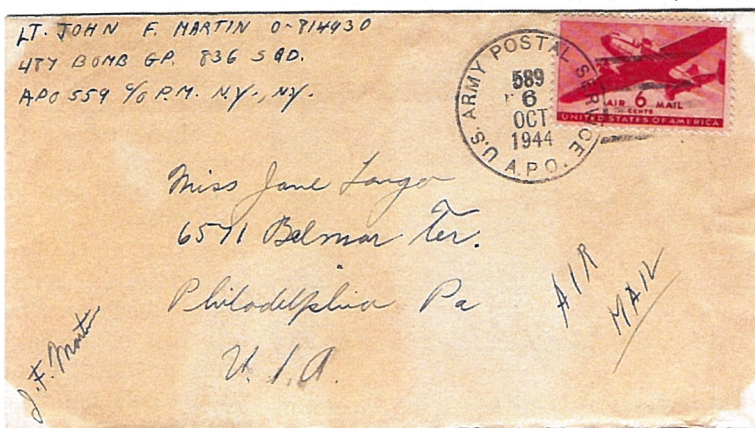 LT. JOHN F. MARTIN O-814930
487 BOMB GP. 836 SQD.
APO 559 c/o P.M. N.Y., N.Y.
U.S. ARMY POSTAL SERVICE
A.P.O.
589
6
OCT
1944
AIR 6 MAIL
CENTS
UNITED STATES OF AMERICA
Miss Jane
6571 Belmar Ter.
Philadelphia Pa
U.S.A.
AIR
MAIL
J. F. Martin